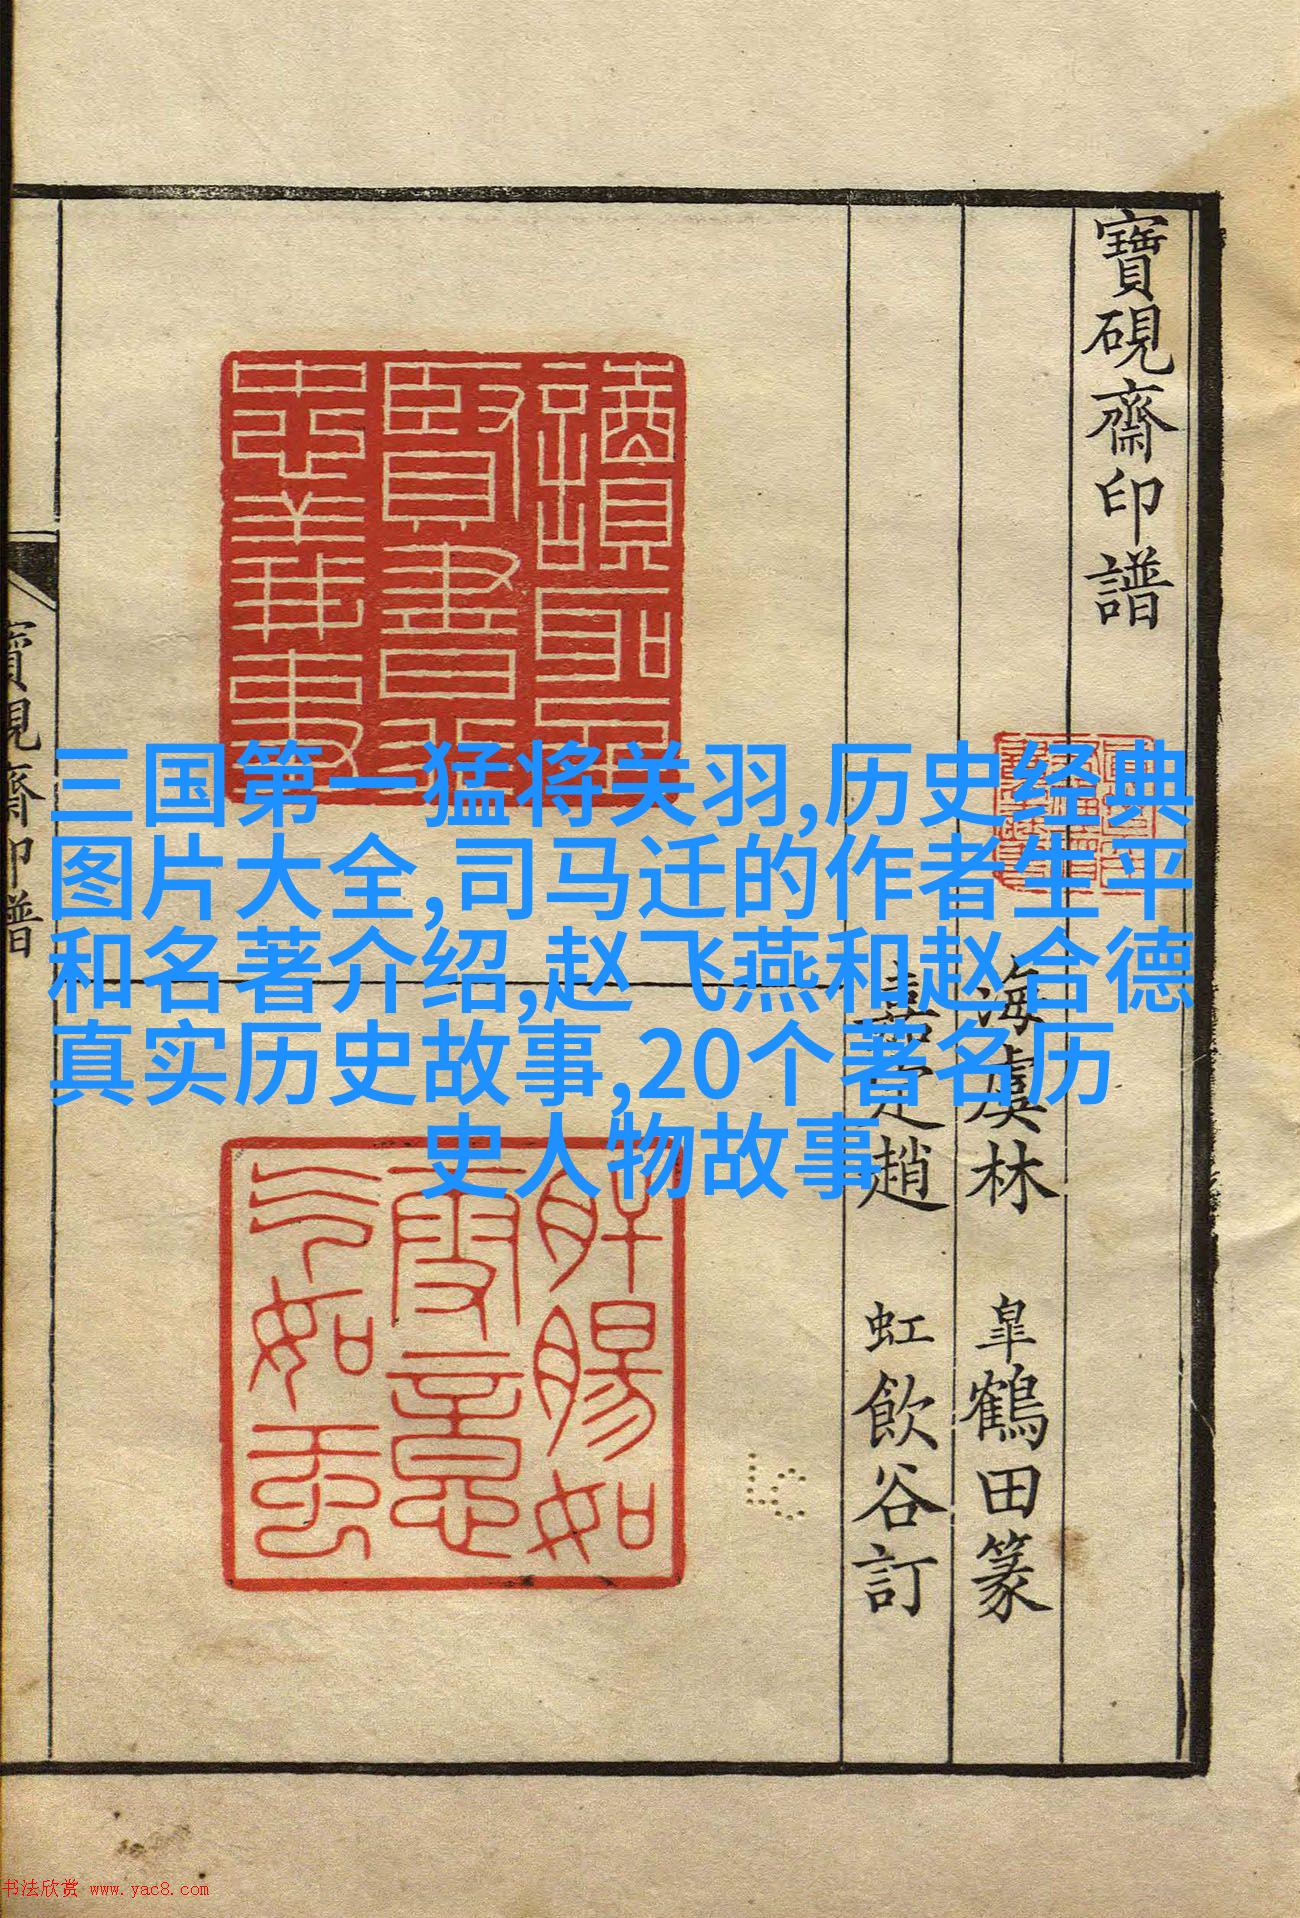 寶硯齋印譜
海虞林 皐鶴田篆
嘉定趙 虹飲谷訂
讀聖
賢書行
忠義事
肝腸如
雪意
氣如虹
寶硯齋印譜
三国第一猛将关羽,历史经典
图片大全,司马迁的作者生平
和名著介绍,赵飞燕和赵合德
真实历史故事,20个著名历
史人物故事
书法欣赏 www.yac8.com